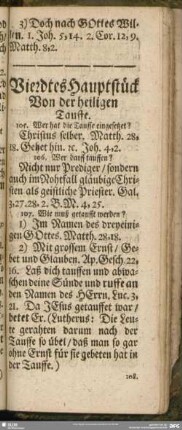 3) Doch nach GOttes Wil-
len. 1. Joh. 5, 14. 2. Cor. 12, 9.
Matth. 8, 2.
Vierdtes Hauptstück
Von der heiligen
Tauffe.
105. Wer hat die Tauffe eingesetzet?
Christus selber. Matth. 28,
18. Gehet hin. ꝛc. Joh. 4, 2.
106. Wer darff tauffen?
Nicht nur Prediger / sondern
auch im Nohtfall gläubige Chri-
sten als geistliche Priester. Gal.
3, 27. 28. 2. B. M. 4, 25.
107. Wie muß getaufft werden?
1) Im Namen des dreyeini-
gen GOttes. Matth. 28. 18.
2) Mit grossem Ernst / Ge-
bet und Glauben. Ap. Gesch. 22,
16. Laß dich tauffen und abwa-
schen deine Sünde und ruffe an
den Namen des HErrn. Luc. 3,
21. Da JEsus getauffet war /
betet Er. (Lutherus: Die Leu-
te gerahten darum nach der
Tauffe so übel / daß man so gar
ohne Ernst für sie gebeten hat in
der Tauffe.)
108.